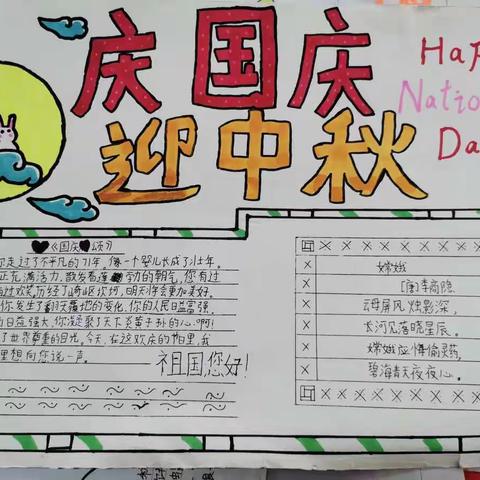 庆国庆
迎中秋
Hap
Natio
Da
《国庆颂》
你走过了不平凡的71年,像一个婴儿长成了壮年。
充满活力,散发着蓬勃的朝气,您有过
过欢笑,历经了崎岖坎坷,明天将会更加美好。
你发生了翻天覆地的变化,你的人民日益富强,
日益强大,你凝聚了天下炎黄子孙的心。啊!
了世界尊重的目光,今天,在这欢庆的节日里,我
里想向您说一声。
祖国,您好!
嫦娥
[唐]李商隐
云母屏风烛影深,
长河见落晓星辰。
嫦娥应悔偷灵药,
碧海青天夜夜心。